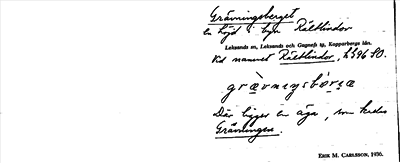 Grävningsberget
en höjd i byn Rältlindor
Leksands sn, Leksands och Gagnefs tg, Kopparbergs län.
vid namnet Rältlindor, 
grävnıŋsbörʝə
Där ligger en äga, som kallas
Grävningen.
ERIK M. CARLSSON, 1930.